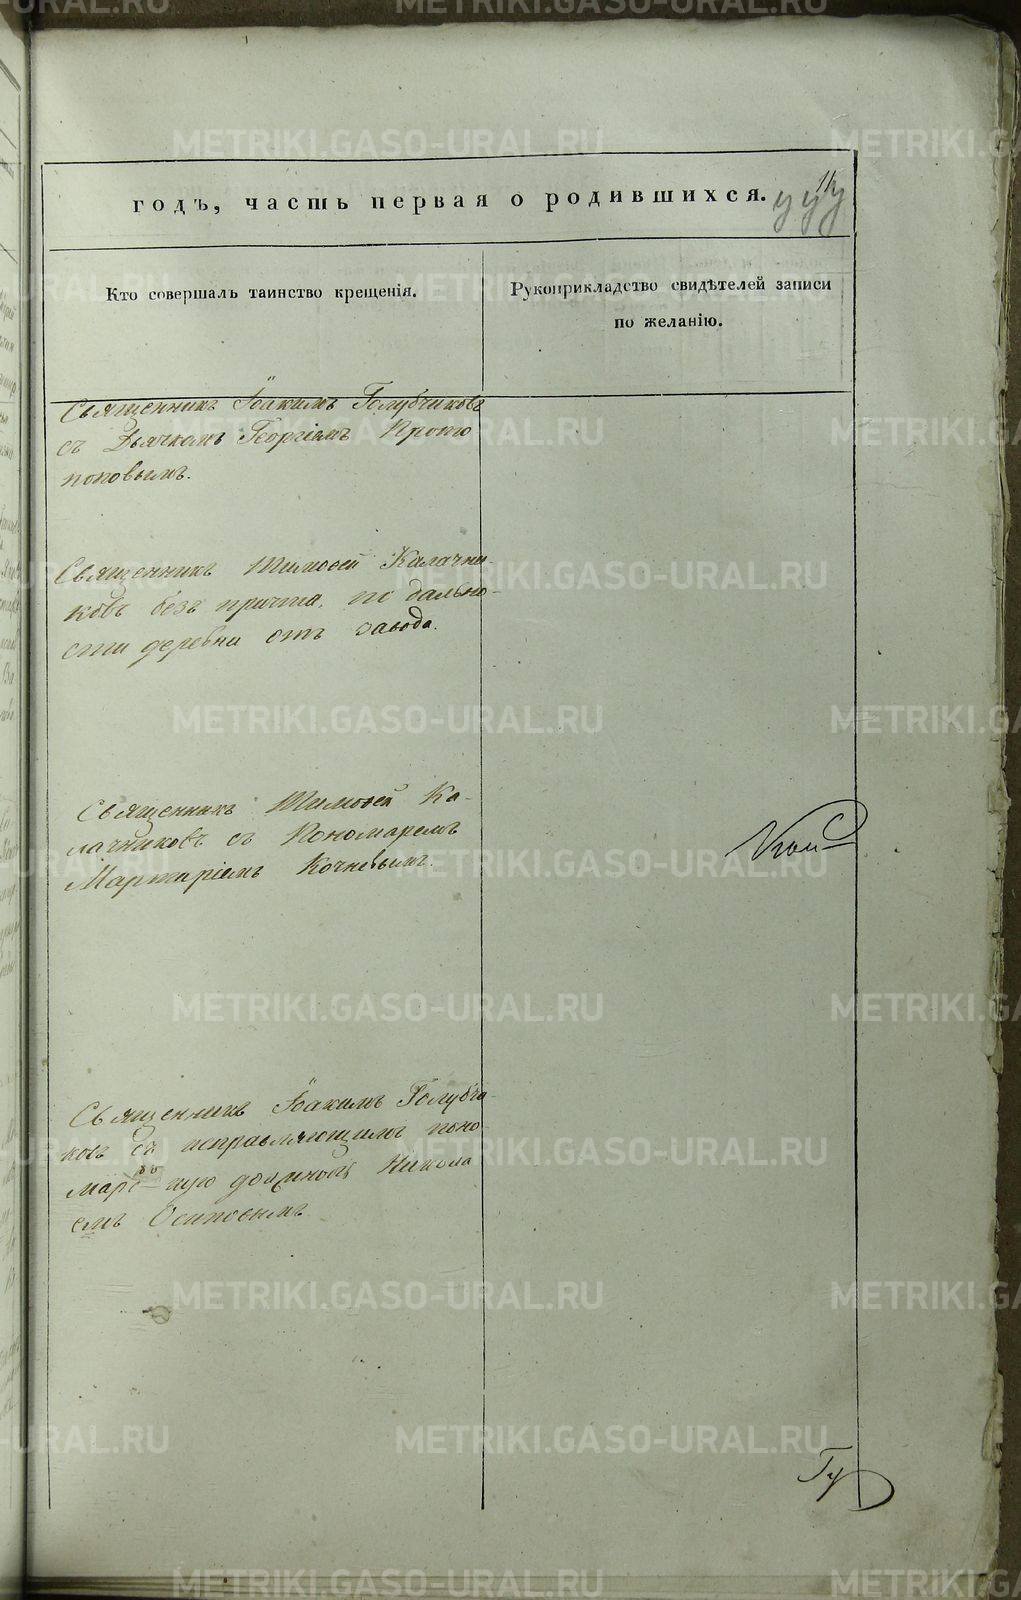 годъ, часть первая о родившихся.
Кто совершалъ таинство крещенія.
Рукоприкладство свидѣтелей записи
по желанію.
Священникъ Іоакимъ Голубчиковъ
съ Дьячкомъ Георгіемъ Прото
поповымъ.
Священникъ Тимоѳей Калачни-
ковъ безъ причта, по дально-
сти деревни отъ завода.
Священникъ Тимоѳей Ка-
лачниковъ съ Пономаремъ
Мартиріемъ Кочневымъ.
Священникъ Іоакимъ Голубчи-
ковъ съ исправляющимъ поно-
марскую должность Никола
емъ Осиповымъ
METRIKI.GASO-URAL.RU